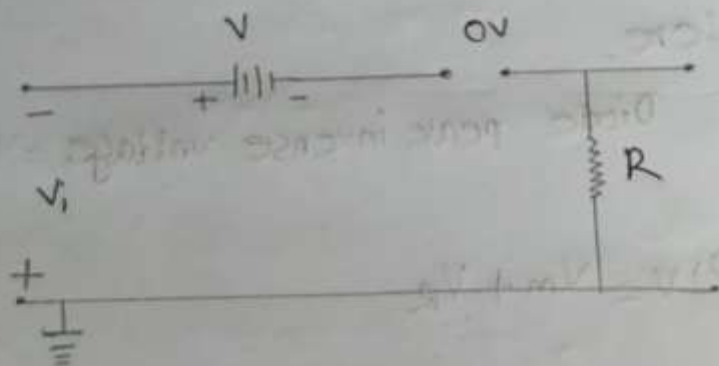 V OV
+ -
-
V₁ R
+